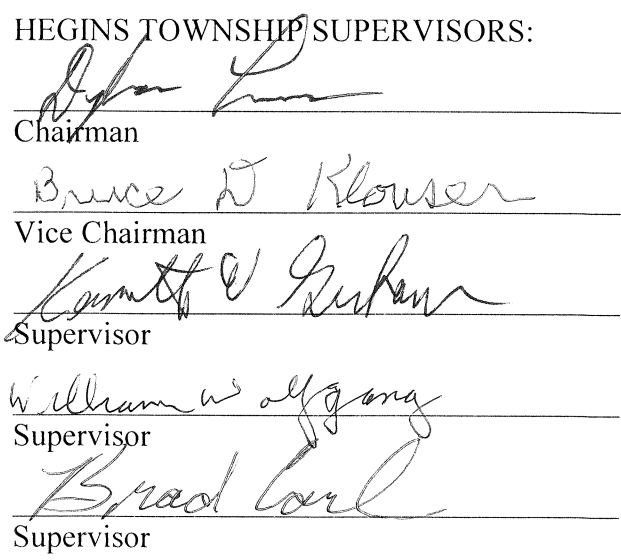 HEGINS TOWNSHIP SUPERVISORS:
Dylan
Chairman
Bruce D Klouser
Vice Chairman
Kenneth W Graham
Supervisor
William Wolfgang
Supervisor
Brad Carl
Supervisor